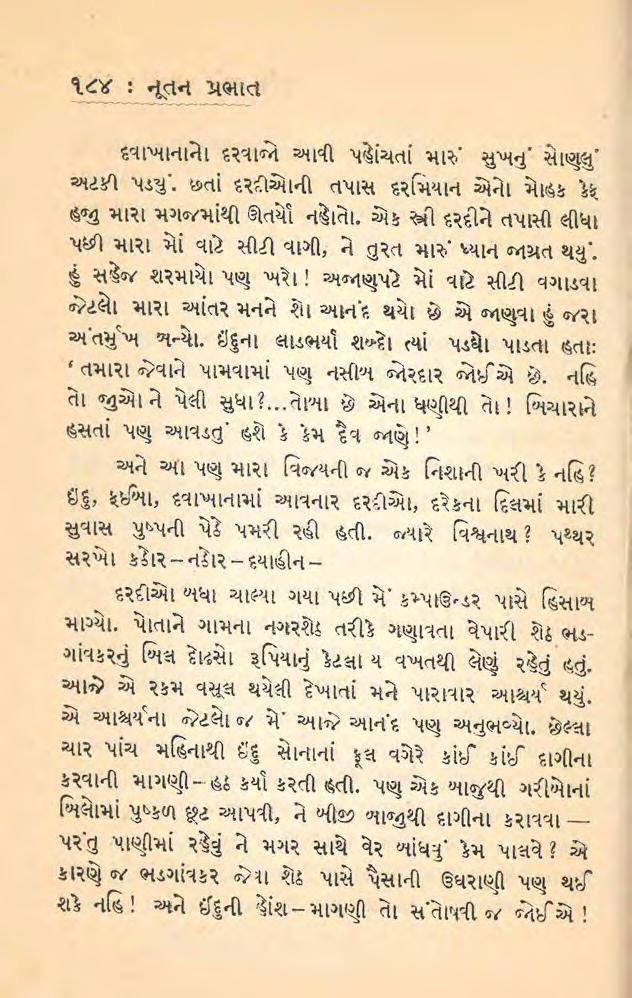 ૧૮૪ : નૂતન પ્રભાત
દવાખાનાનો દરવાજો આવી પહોંચતાં મારું સુખનું સોણલું
અટકી પડયું. છતાં દરદીઓની તપાસ દરમિયાન એનો મોહક કેફ
હજુ મારા મગજમાંથી ઊતર્યો નહોતો. એક સ્ત્રી દરદીને તપાસી લીધા
પછી મારા મોં વાટે સીટી વાગી, ને તુરત મારું ધ્યાન જાગ્રત થયું.
હું સહેજ શરમાયો પણ ખરો! અજાણપટે મોં વાટે સીટી વગાડવા
જેટલો મારા આંતર મનને શો આનંદ થયો છે એ જાણવા હું જરા
અંતર્મુખ બન્યો. ઇંદુના લાડભર્યાં શબ્દો ત્યાં પડઘો પાડતા હતાઃ
‘તમારા જેવાને પામવામાં પણ નસીબ જોરદાર જોઈએ છે. નહિ
તો જુઓ ને પેલી સુધા?...તોબા છે એના ધણીથી તો! બિચારાને
હસતાં પણ આવડતું હશે કે કેમ દૈવ જાણે!’
અને આ પણ મારા વિજયની જ એક નિશાની ખરી કે નહિ?
ઇંદુ, ફઈબા, દવાખાનામાં આવનાર દરદીઓ, દરેકના દિલમાં મારી
સુવાસ પુષ્પની પેઠે પમરી રહી હતી. જ્યારે વિશ્વનાથ? પથ્થર
સરખો કઠોર–નઠોર–દયાહીન–
દરદીઓ બધા ચાલ્યા ગયા પછી મેં કમ્પાઉન્ડર પાસે હિસાબ
માગ્યો. પોતાને ગામના નગરશેઠ તરીકે ગણાવતા વેપારી શેઠ ભડ-
ગાંવકરનું બિલ દોઢસો રૂપિયાનું કેટલા ય વખતથી લેણું રહેતું હતું.
આજે એ રકમ વસૂલ થયેલી દેખાતાં મને પારાવાર આશ્ચર્ય થયું.
એ આશ્ચર્યના જેટલો જ મેં આજે આનંદ પણ અનુભવ્યો. છેલ્લા
ચાર પાંચ મહિનાથી ઇંદુ સોનાનાં ફૂલ વગેરે કાંઈ કાંઈ દાગીના
કરવાની માગણી–હઠ કર્યા કરતી હતી. પણ એક બાજુથી ગરીબોનાં
બિલોમાં પુષ્કળ છૂટ આપવી, ને બીજી બાજુથી દાગીના કરાવવા —
પરંતુ પાણીમાં રહેવું ને મગર સાથે વેર બાંધવું કેમ પાલવે? એ
કારણે જ ભડગાંવકર જેવા શેઠ પાસે પૈસાની ઉઘરાણી પણ થઈ
શકે નહિ! અને ઇંદુની હોંશ–માગણી તો સંતોષવી જ જોઈએ!